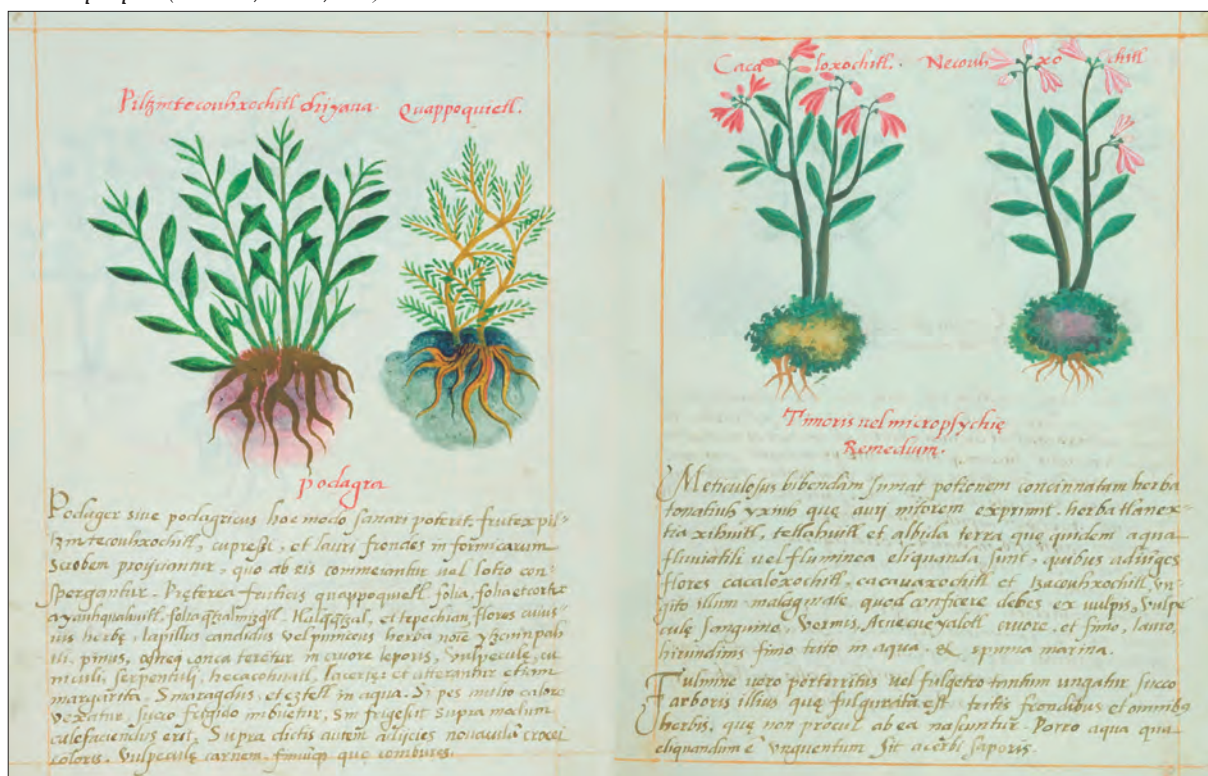 Piltzintecouhxochitl dijyana. Quappoquietl.
podagra
Podager siue podagricus hoc modo sanari poterit. frutex pil=
tzintecouhxochitl, cupressi, et lauri frondes in formicarum
Scrobem proijciantur, quo ab eis commeantur uel lotio con=
spergantur. Pręterea fruticis quappoquietl folia, folia et cortex
ayauhquahuitl, folia quetzalmizquitl. tlalquequetzal, et tepechian, flores cuius=
uis herbę, lapillus candidus vel puniceus herba noīe
pinus, in cruore leporis, Vulpeculę, cu
niculi, serpentuli, hecacohuatl, lacertę: et atterantur etiam
margarita. Smaragdus. et eztetl in aqua. Si pes multo calore
vexatur, succo frigido imbuetur, Sin frigescit supra modum
calefaciendus erit. Supra dictis autem adijcies crocei
coloris. Vulpeculę carnem, que combures.
Cacaloxochitl. Necouhxochitl
Timoris uel micropsychię
Remedium.
Meticulosus bibendam sumat potionem concinnatam herba
tonatiuh yxiuh quę auri nitorem exprimit. herba tlanex=
tia xihuitl, tetlahuitl et albida terra que quidem aqua
fluuiatili uel fluminea eliquanda sunt, quibus adiuges
flores cacaloxochitl, cacauaxochitl et tzacouhxochitl un=
gito illum malagmate, quod conficere debes ex uulpis, Vulpe
culę sanguine, Vermis, Acuecueyalotl cruore, et fimo, lauro,
hirundinis fimo trito in aqua. & spuma marina.
Fulmine uero perterritus uel fulgetro tantum ungatur succo
arboris illius quę fulgurata est tritis frondibus et omnibꝰ
herbis, quę non procul ab ea nascuntur. Porro aqua qua
eliquandum ē Vnguentum sit acerbi saporis.